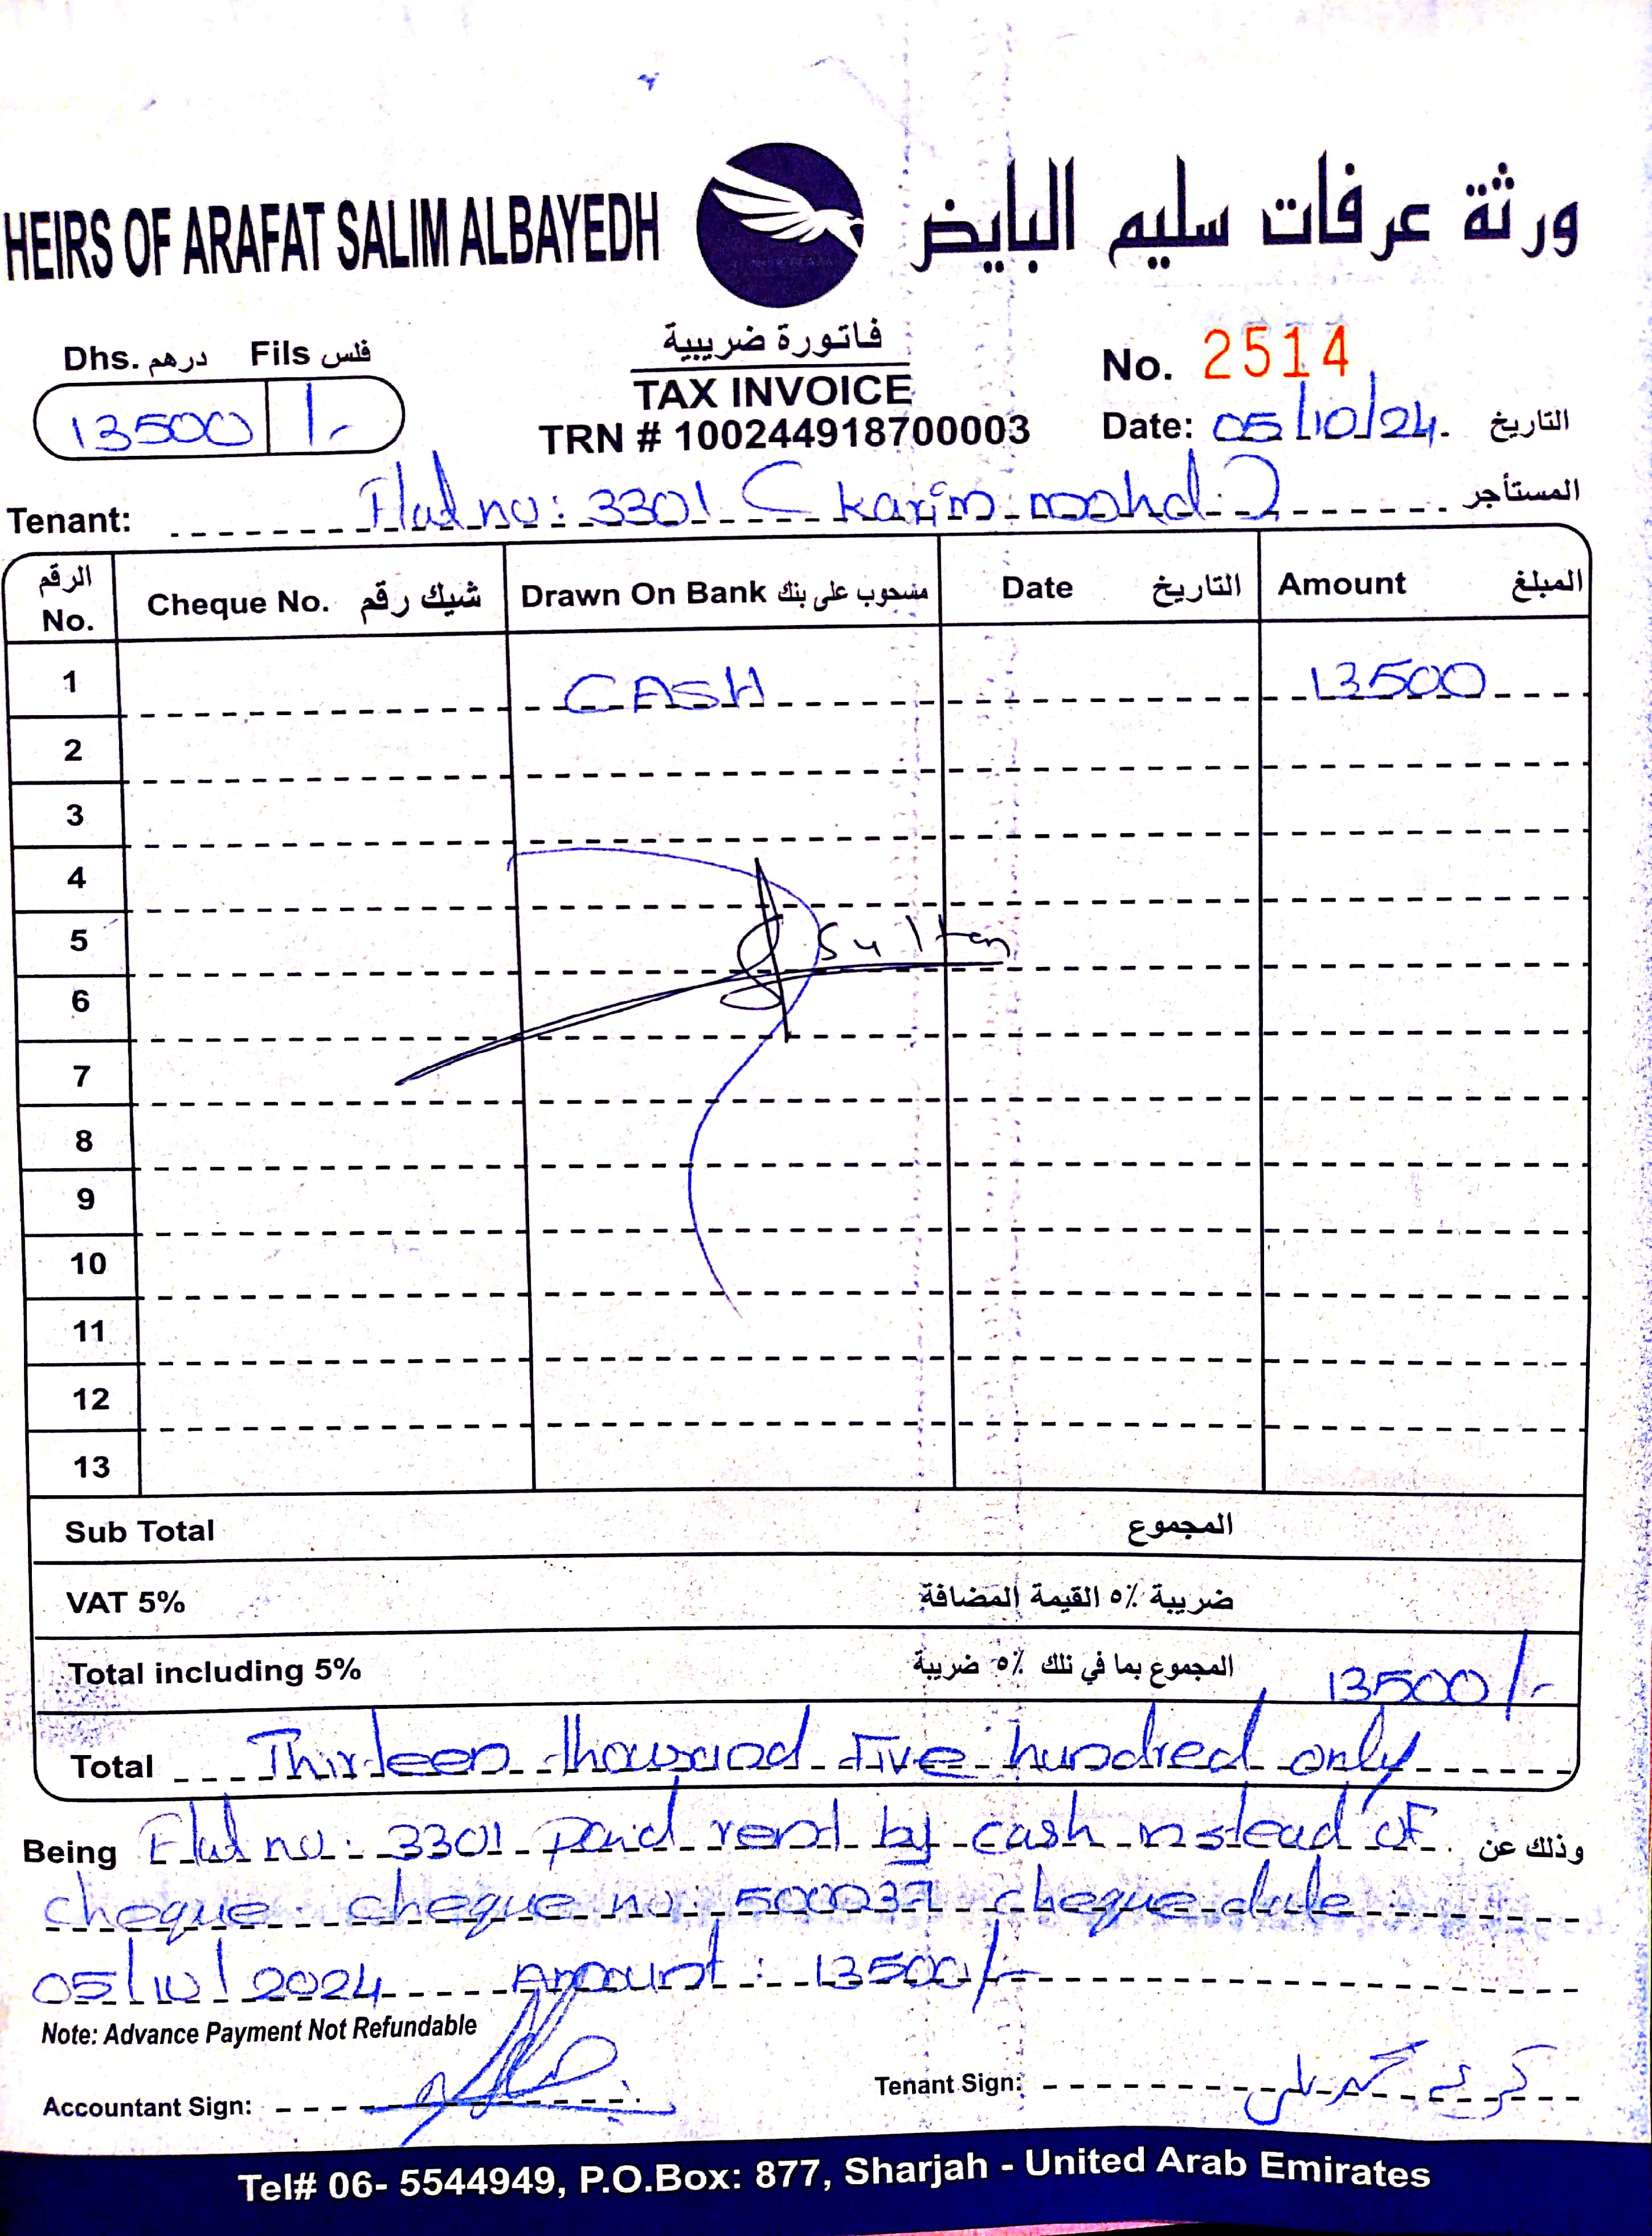 HEIRS OF ARAFAT SALIM ALBAYEDH ورثة عرفات سليم البايض
Dhs. درهم Fils فلس
13500 /-
فاتورة ضريبية
TAX INVOICE
TRN # 100244918700003
No. 2514
Date: 05/10/24. التاريخ
Tenant: Flat no: 3301 ( karim mohd ) المستأجر
الرقم No. Cheque No. شيك رقم Drawn On Bank مسحوب على بنك Date التاريخ Amount المبلغ
1 CASH 13500
2
3
4
5 Sultan
6
7
8
9
10
11
12
13
Sub Total المجموع
VAT 5% ضريبة ٥٪ القيمة المضافة
Total including 5% المجموع بما في تلك ٥٪ ضريبة 13500/-
Total Thirteen thousand Five hundred only
Being Flat no: 3301 paid rent by cash instead of وذلك عن
cheque. cheque no: 500037 cheque date
05/10/2024 Amount: 13500/-
Note: Advance Payment Not Refundable
Accountant Sign: Tenant Sign: كريم محمد علي
Tel# 06- 5544949, P.O.Box: 877, Sharjah - United Arab Emirates